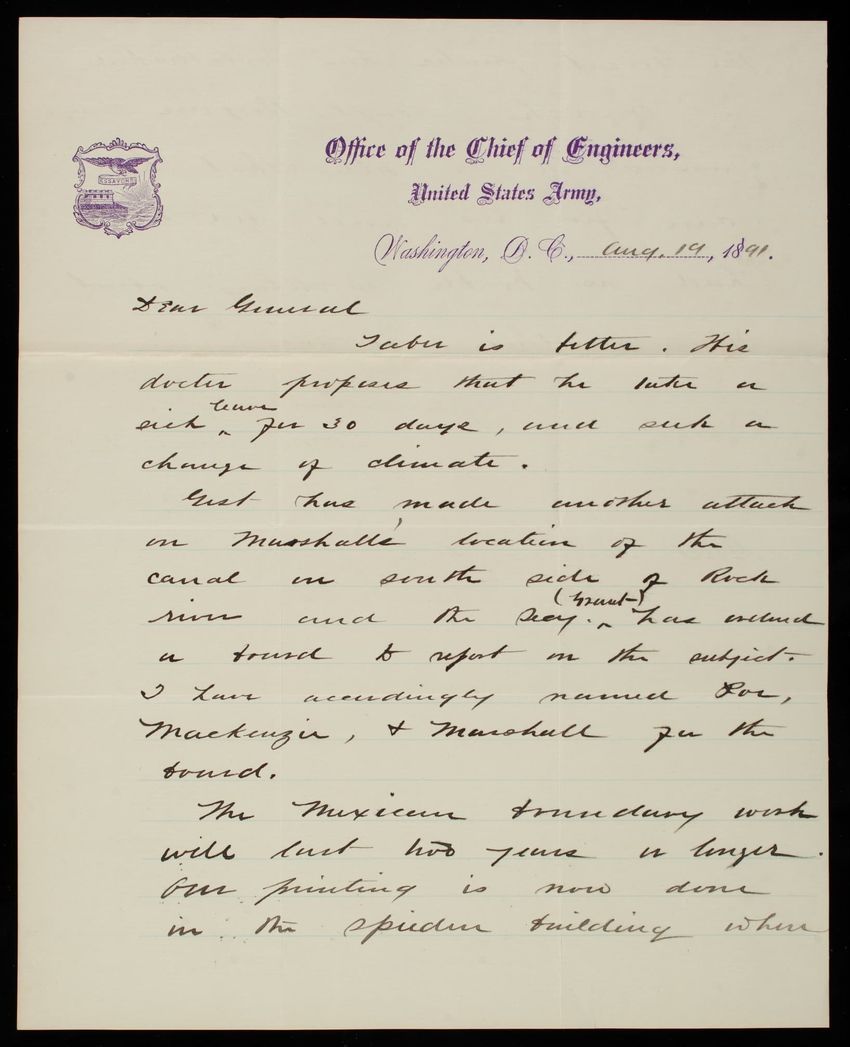 Office of the Chief of Engineers,
United States Army,
Washington, D. C., Aug. 19, 1891.
ESSAYONS
Dear General
Taber is better. His
doctor proposes that he take a
sick leave for 30 days, and seek a
change of climate.
Gest has made another attack
on Marshall's location of the
canal on south side of Rock
river and the Secy. (Grant) has ordered
a board to report on the subject.
I have accordingly named Poe,
Mackenzie, & Marshall for the
board.
The Mexican boundary work
will last two years or longer.
Our printing is now done
in the building where